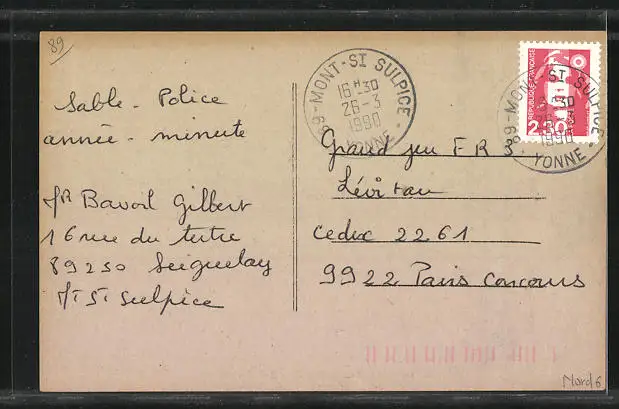 89
Sable - Police
année - minute
Mr Bavoil Gilbert
16 rue du tertre
89250 Seignelay
Mt St Sulpice
89-MONT-ST SULPICE
16H30
26-3
1990
YONNE
REPUBLIQUE FRANÇAISE
2,30
89-MONT-ST SULPICE
26-3
1990
YONNE
Grand jeu FR3
Lévitan
Cedex 2261
9922 Paris Concours
Nord6